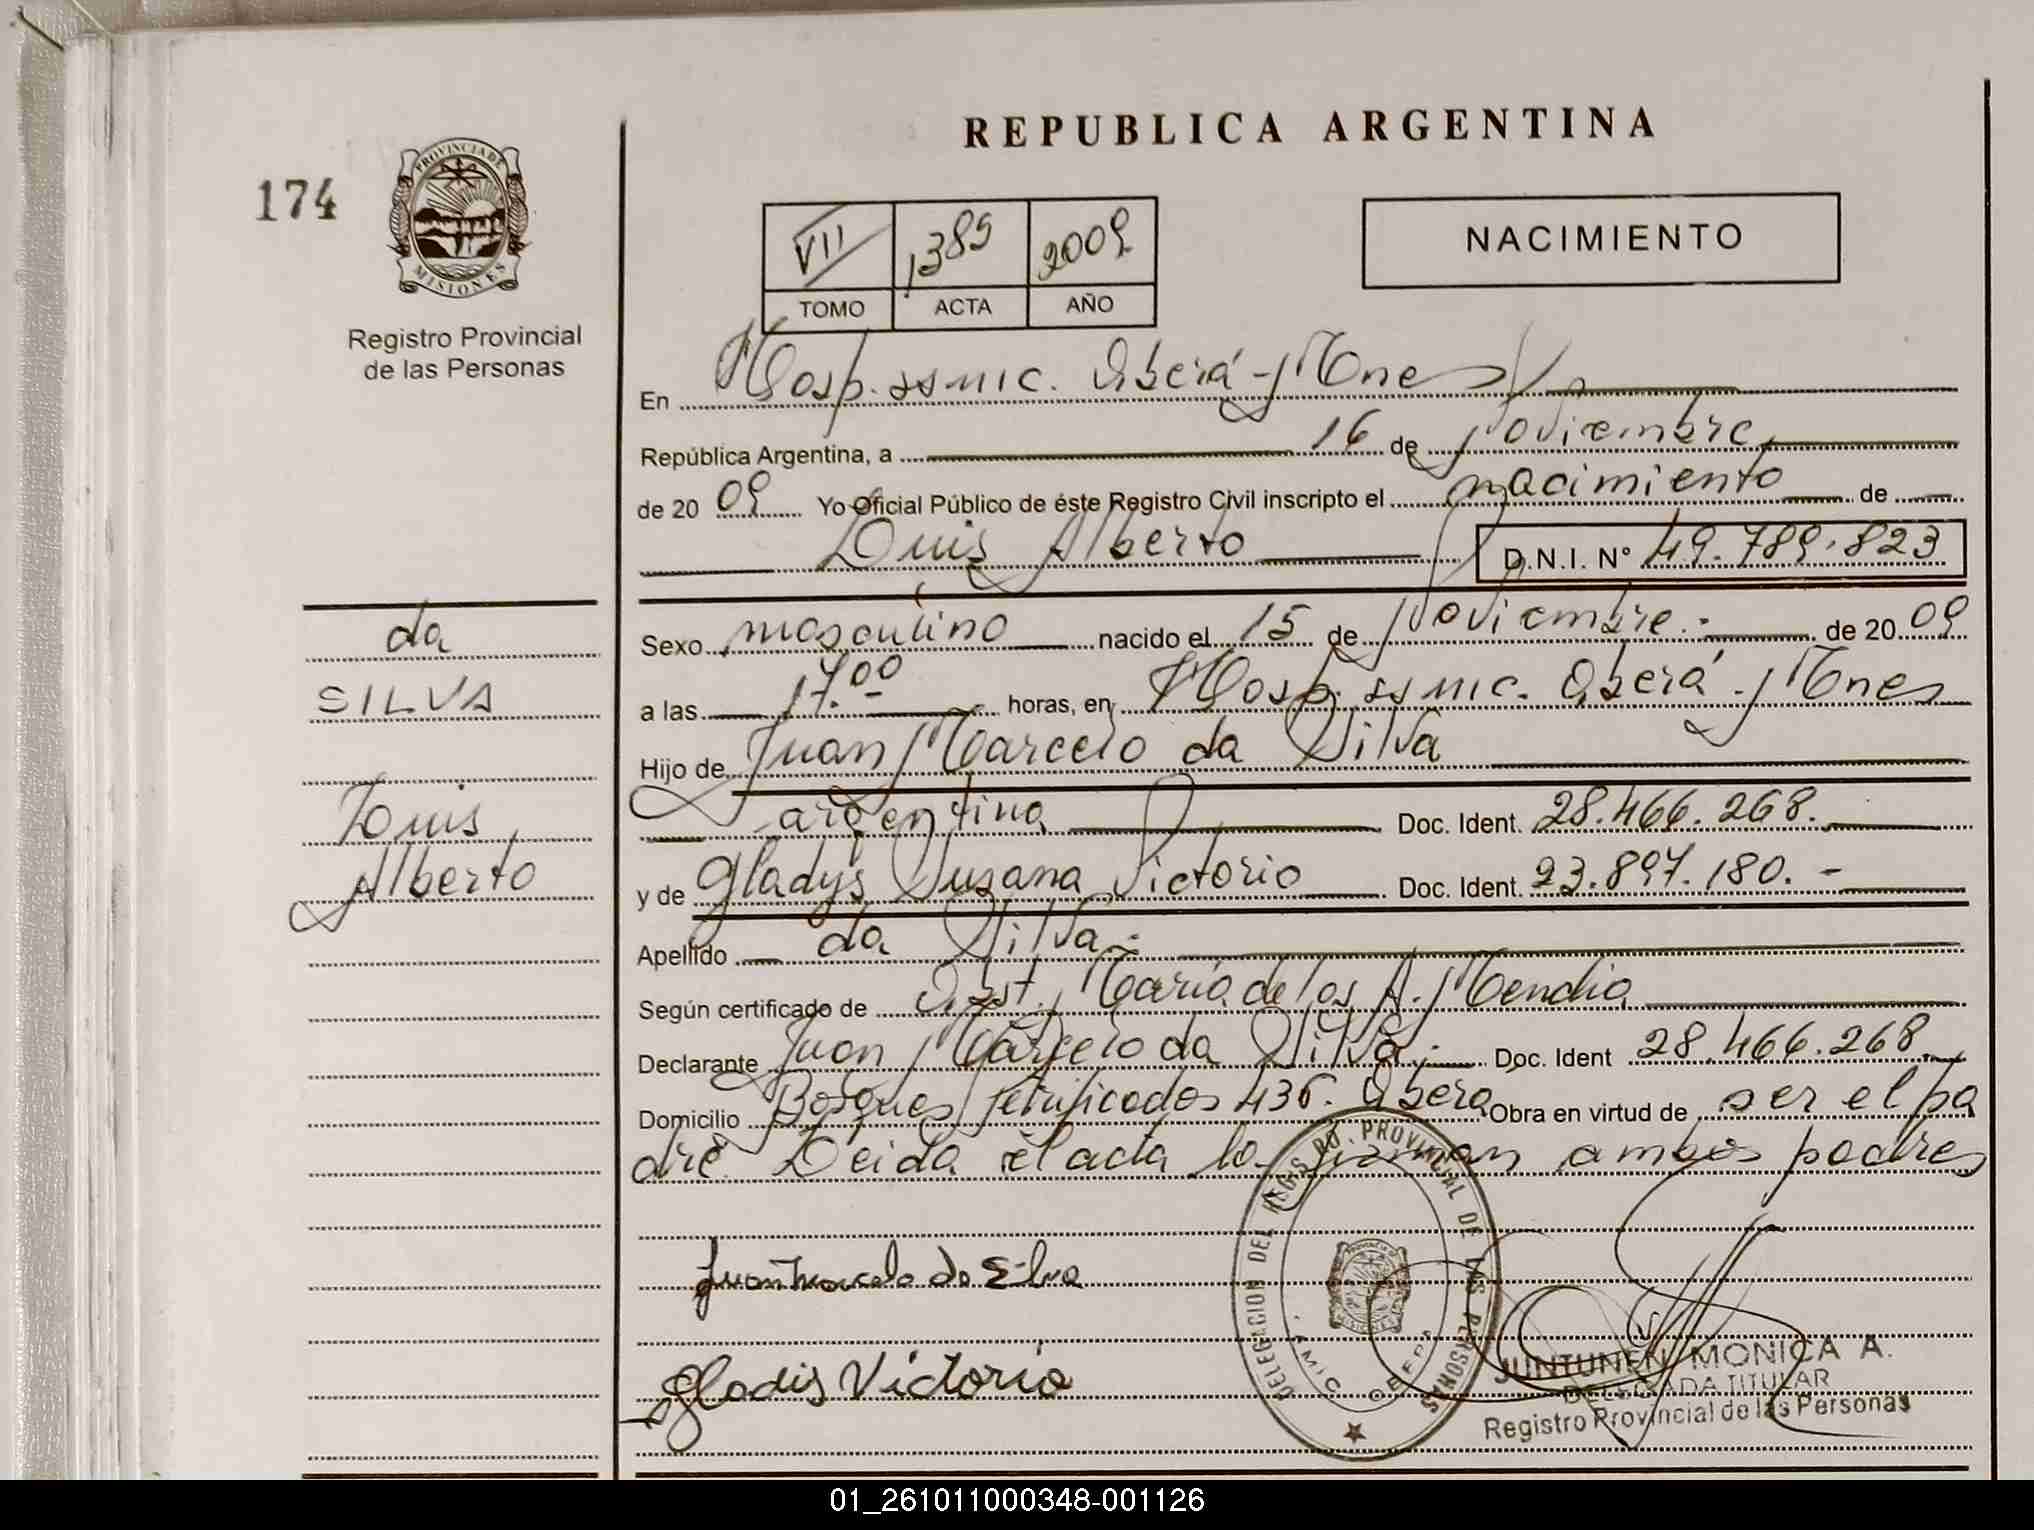 REPUBLICA ARGENTINA
174
PROVINCIA DE
MISIONES
Registro Provincial
de las Personas
VII 1389 2009
TOMO ACTA AÑO
NACIMIENTO
En Hosp. ssmic. Oberá - Mnes
República Argentina, a 16 de Noviembre
de 2009 Yo Oficial Público de éste Registro Civil inscripto el nacimiento de
Luis Alberto D.N.I. Nº 49.789.823
da
SILVA
Luis
Alberto
Sexo masculino nacido el 15 de Noviembre.- de 2009
a las 17.00 horas, en Hosp. ssmic. Oberá - Mnes
Hijo de Juan Marcelo da Silva
argentina Doc. Ident. 28.466.268.
y de Gladys Susana Victorio Doc. Ident. 23.897.180.-
Apellido da Silva.-
Según certificado de Obst. María de los A. Mendia
Declarante Juan Marcelo da Silva.- Doc. Ident 28.466.268
Domicilio Bosques Petrificados 436. Oberá Obra en virtud de ser el pa
dre. Leida el acta la firman ambos padres
Juan Marcelo da Silva
Gladis Victorio
DELEGACION DEL REGISTRO PROVINCIAL DE LAS PERSONAS
JUNTUNEN MONICA A.
DELEGADA TITULAR
Registro Provincial de las Personas
01_261011000348-001126